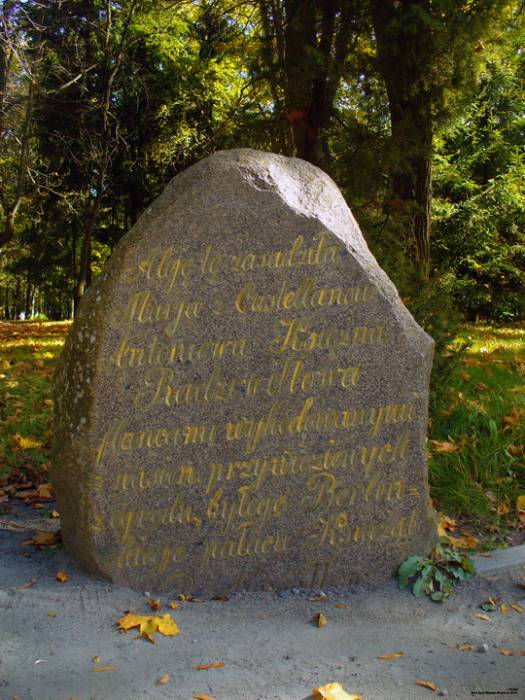 Aleję tę zasadziła
Marja z Castellanów
Antoniowa Księżna
Radziwiłłowa
flancami wyhodowanymi
z nasion przywiezionych
z ogrodu byłego Berliń-
skiego pałacu Książąt